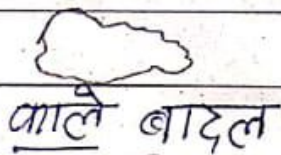 काले बादल